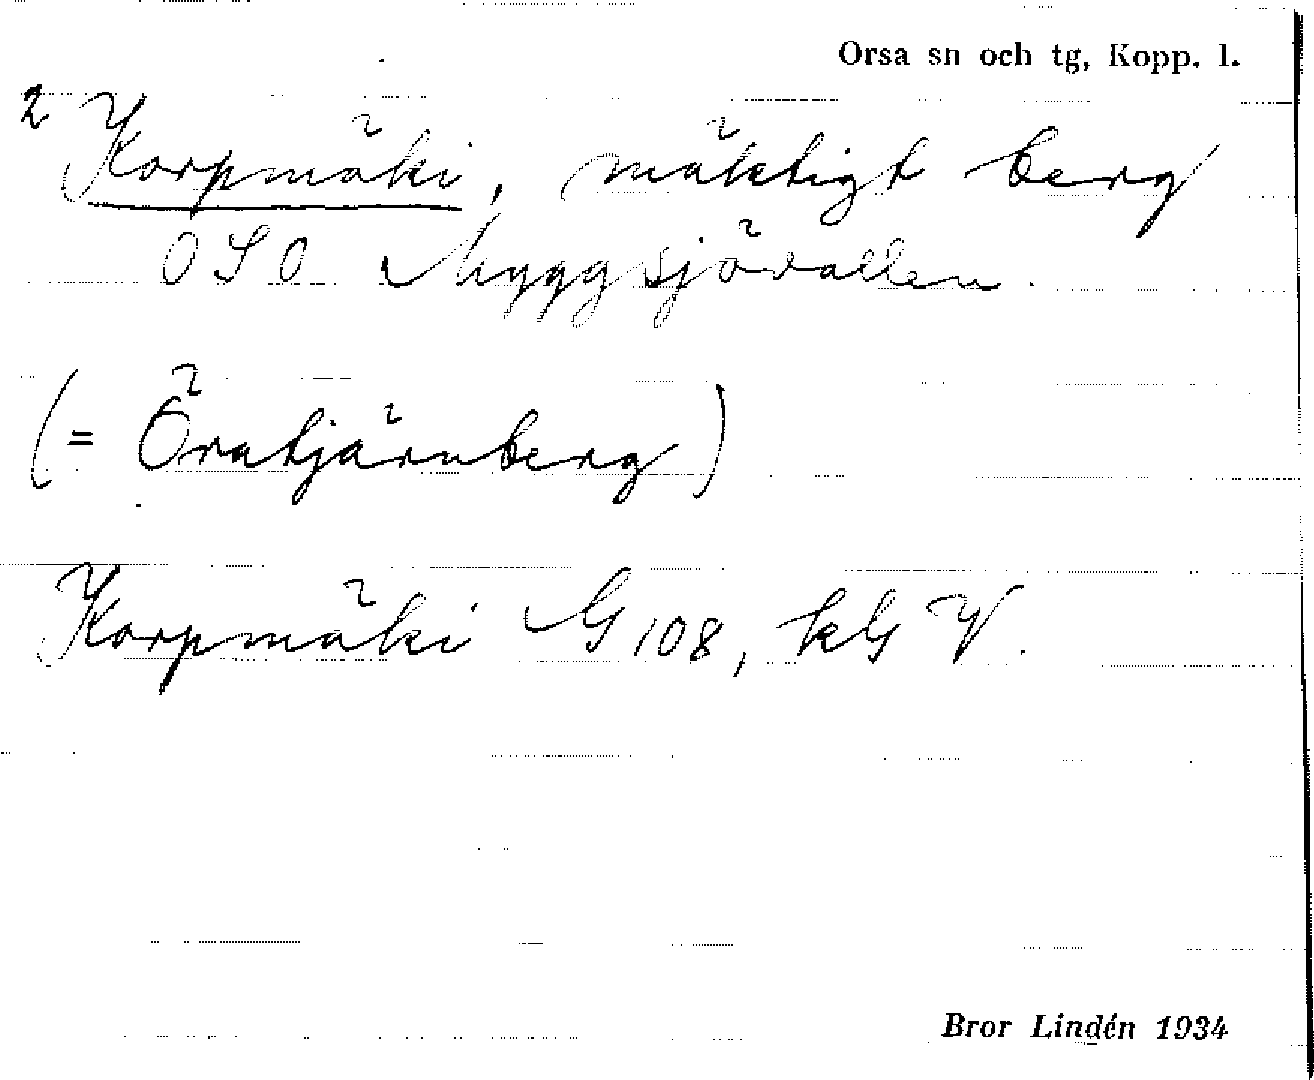 Orsa sn och tg, Kopp. l.
2 Korpmäki, mäktigt berg
OSO Myggsjövallen.
(= Öratjärnberg)
Korpmäki G 108, kG V.
Bror Lindén 1934